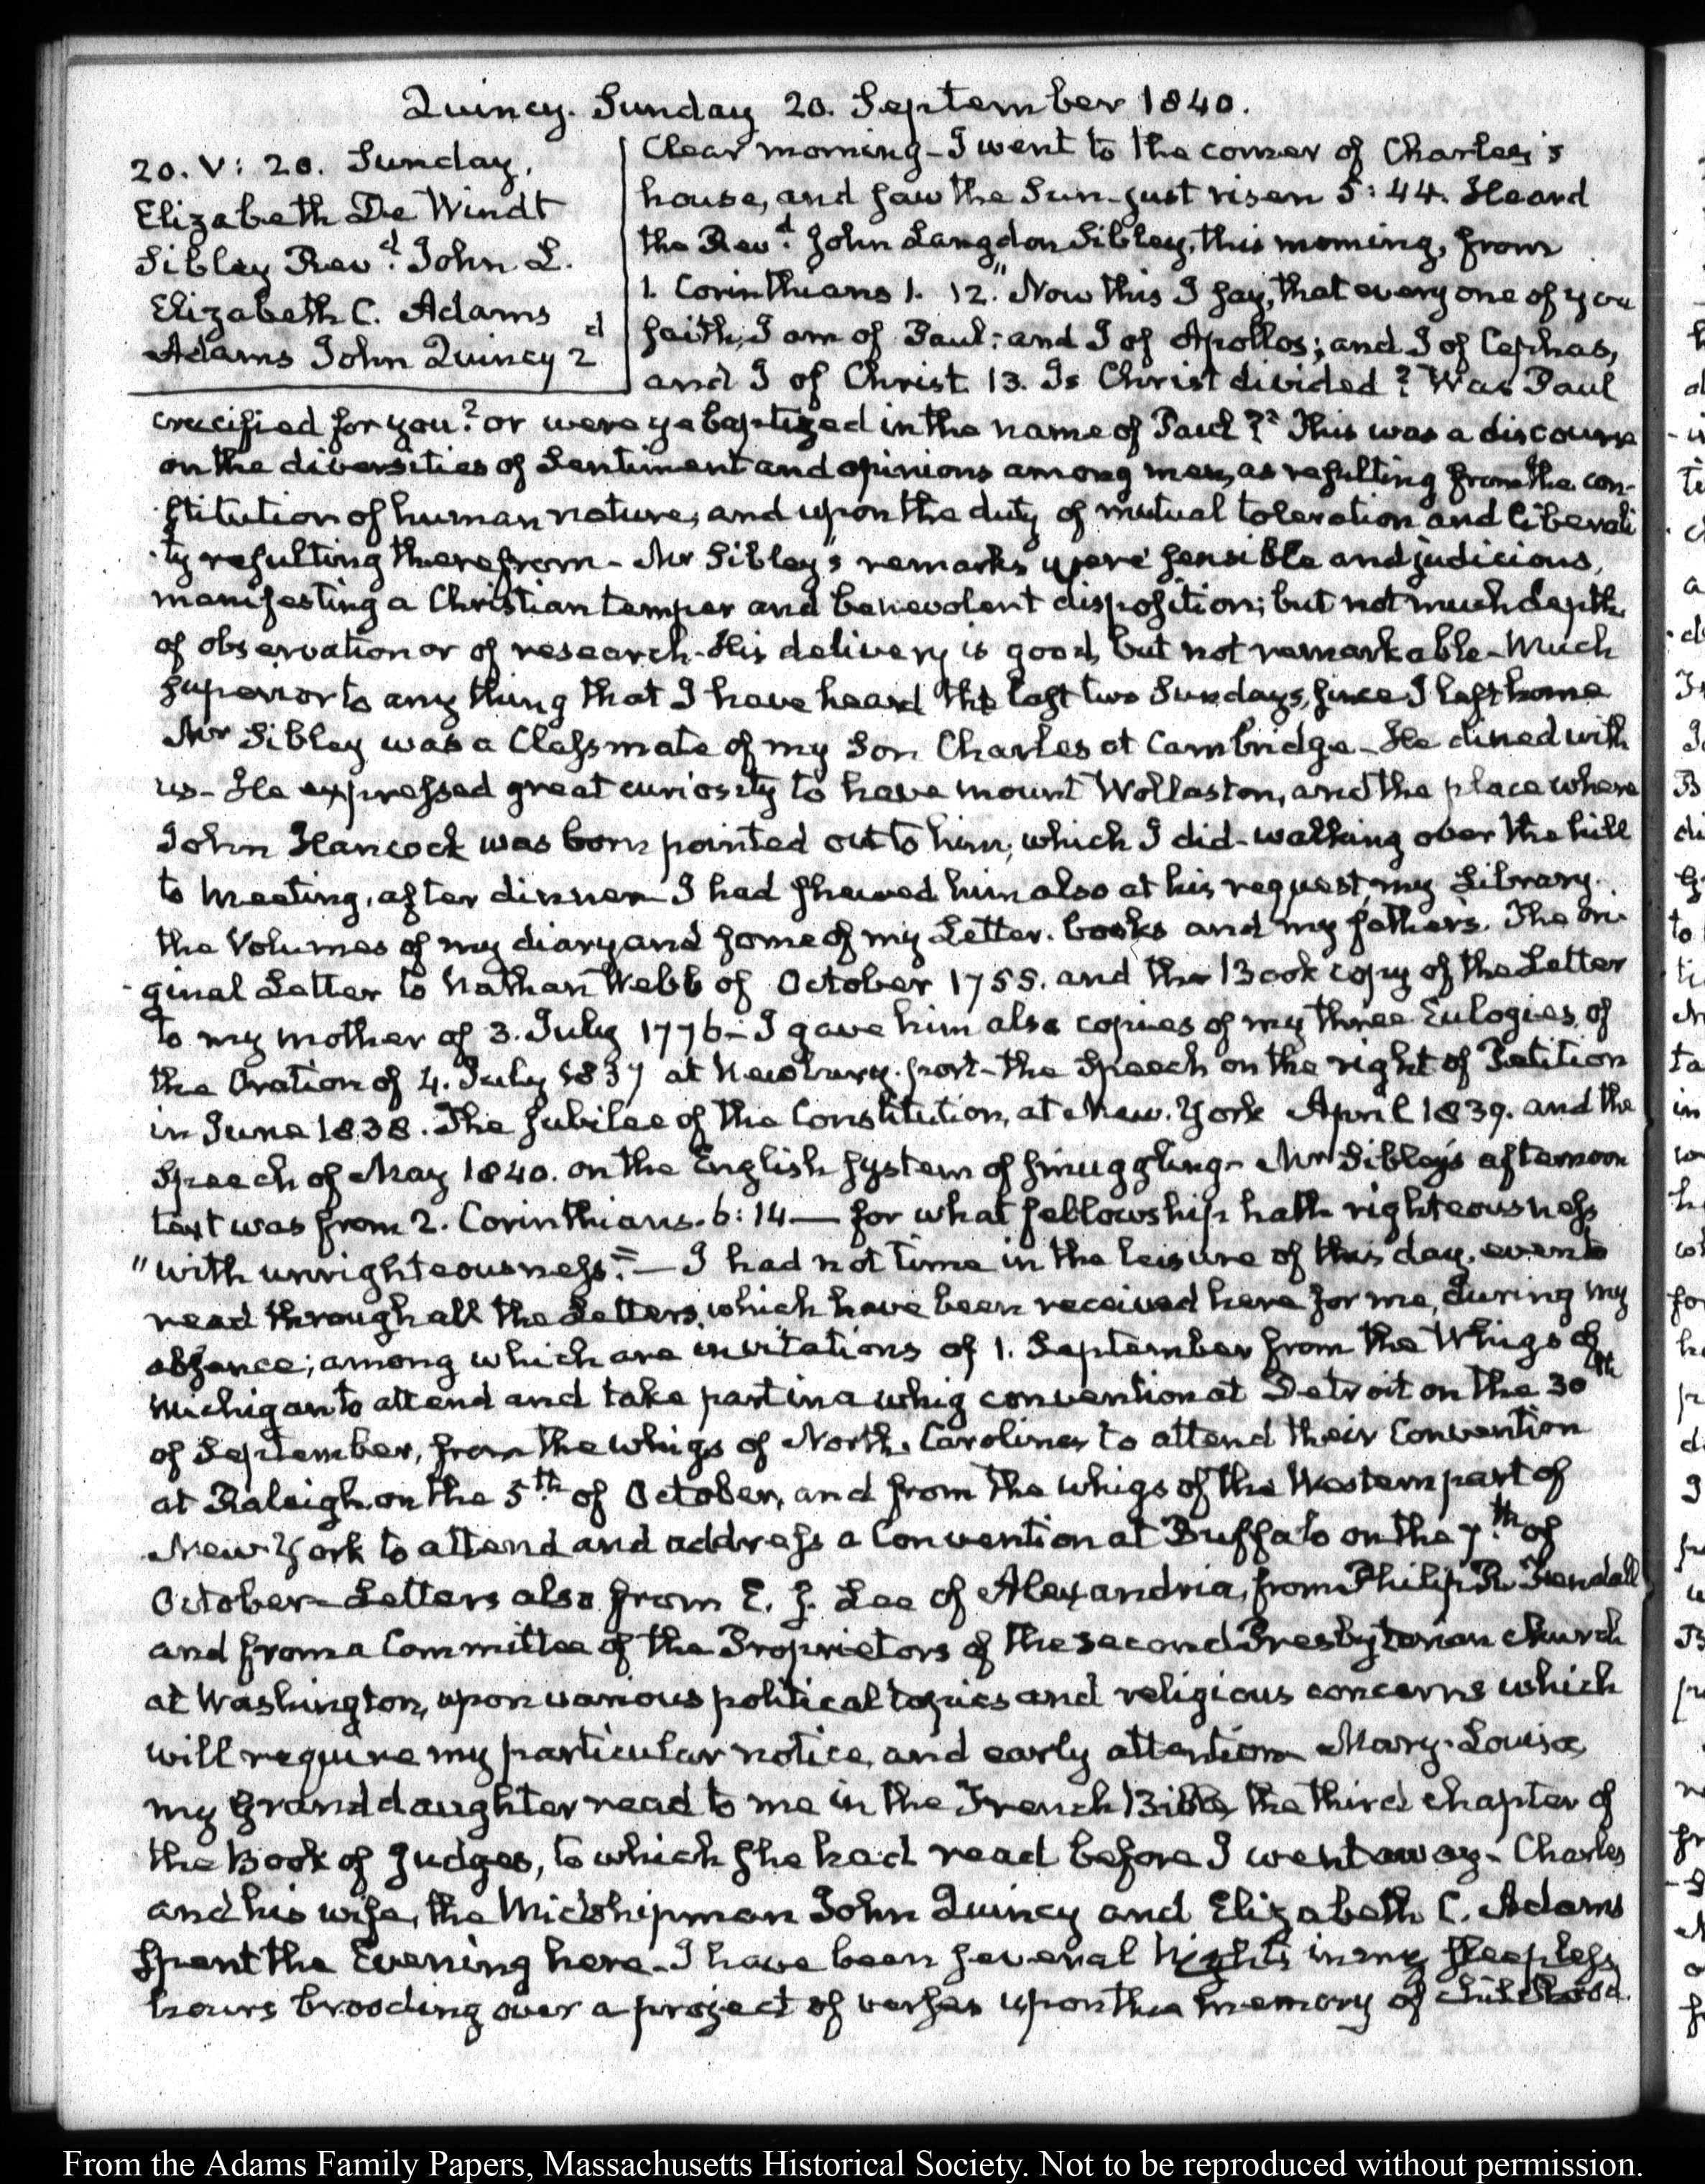 Quincy. Sunday 20. September 1840.
20. V: 20. Sunday.
Elizabeth De Windt
Sibley Revd. John L.
Elizabeth C. Adams
Adams John Quincy 2d
Clear morning - I went to the corner of Charles's
house, and saw the Sun just risen 5:44. Heard
the Revd. John Langdon Sibley, this morning, from
1. Corinthians 1. 12. "Now this I say, that every one of you
saith, I am of Paul; and I of Apollos; and I of Cephas,
and I of Christ. 13. Is Christ divided? Was Paul
crucified for you? or were ye baptized in the name of Paul?" This was a discourse
on the diversities of Sentiment and opinions among men, as resulting from the con-
stitution of human nature, and upon the duty of mutual toleration and liberali
ty resulting therefrom - Mr Sibley's remarks were sensible and judicious,
manifesting a Christian temper and benevolent disposition; but not much depth
of observation or of research - His delivery is good, but not remarkable - Much
superior to any thing that I have heard the last two Sundays, since I left home
Mr Sibley was a Classmate of my Son Charles at Cambridge - He dined with
us - He expressed great curiosity to have mount Wollaston, and the place where
John Hancock was born pointed out to him; which I did - walking over the hill
to Meeting, after dinner - I had shewed him also at his request, my Library.
the Volumes of my diary and some of my Letter-books and my father's. The ori-
ginal Letter to Nathan Webb of October 1755. and the Book copy of the Letter
to my mother of 3. July 1776 - I gave him also copies of my three Eulogies, of
the Oration of 4. July 1837 at Newbury-port - the Speech on the right of Petition
in June 1838. The Jubilee of the Constitution, at New-York April 1839. and the
Speech of May 1840. on the English system of smuggling - Mr Sibley's afternoon
text was from 2. Corinthians. 6:14 — for what fellowship hath righteousness
"with unrighteousness." — I had not time in the leisure of this day, even to
read through all the Letters, which have been received here for me, during my
absence; among which are invitations of 1. September from the Whigs of
Michigan to attend and take part in a whig convention at Detroit on the 30th
of September, from the whigs of North-Carolina to attend their Convention
at Raleigh on the 5th. of October, and from the whigs of the Western part of
New-York to attend and address a Convention at Buffalo on the 7th. of
October - Letters also from E. J. Lee of Alexandria, from Philip R. Fendall
and from a Committee of the Proprietors of the second Presbyterian Church
at Washington, upon various political topics and religious concerns which
will require my particular notice, and early attention - Mary-Louisa
my Granddaughter read to me in the French Bible, the third chapter of
the Book of Judges, to which she had read before I went away - Charles
and his wife, the Midshipman John Quincy and Elizabeth C. Adams
spent the Evening here - I have been several Nights in my sleepless
hours brooding over a project of verses upon the memory of Childhood.
From the Adams Family Papers, Massachusetts Historical Society. Not to be reproduced without permission.